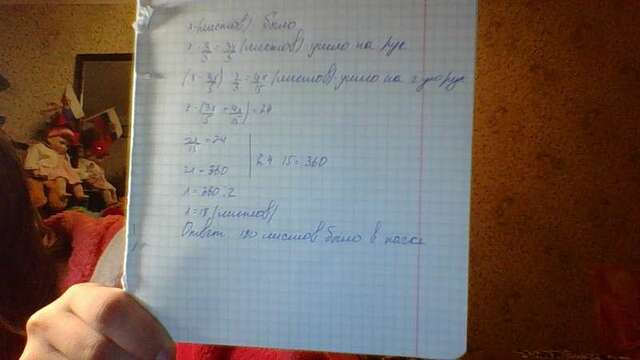 x (листов) было
x · 3/5 = 3x/5 (листов) ушло на рус
(x - 3x/5) · 2/3 = 4x/15 (листов) ушло на
x - (3x/5 + 4x/15) = 24
2x/15 = 24
24 · 15 = 360
2x = 360
x = 360 : 2
x = 18 (листов)
Ответ 180 листов было в